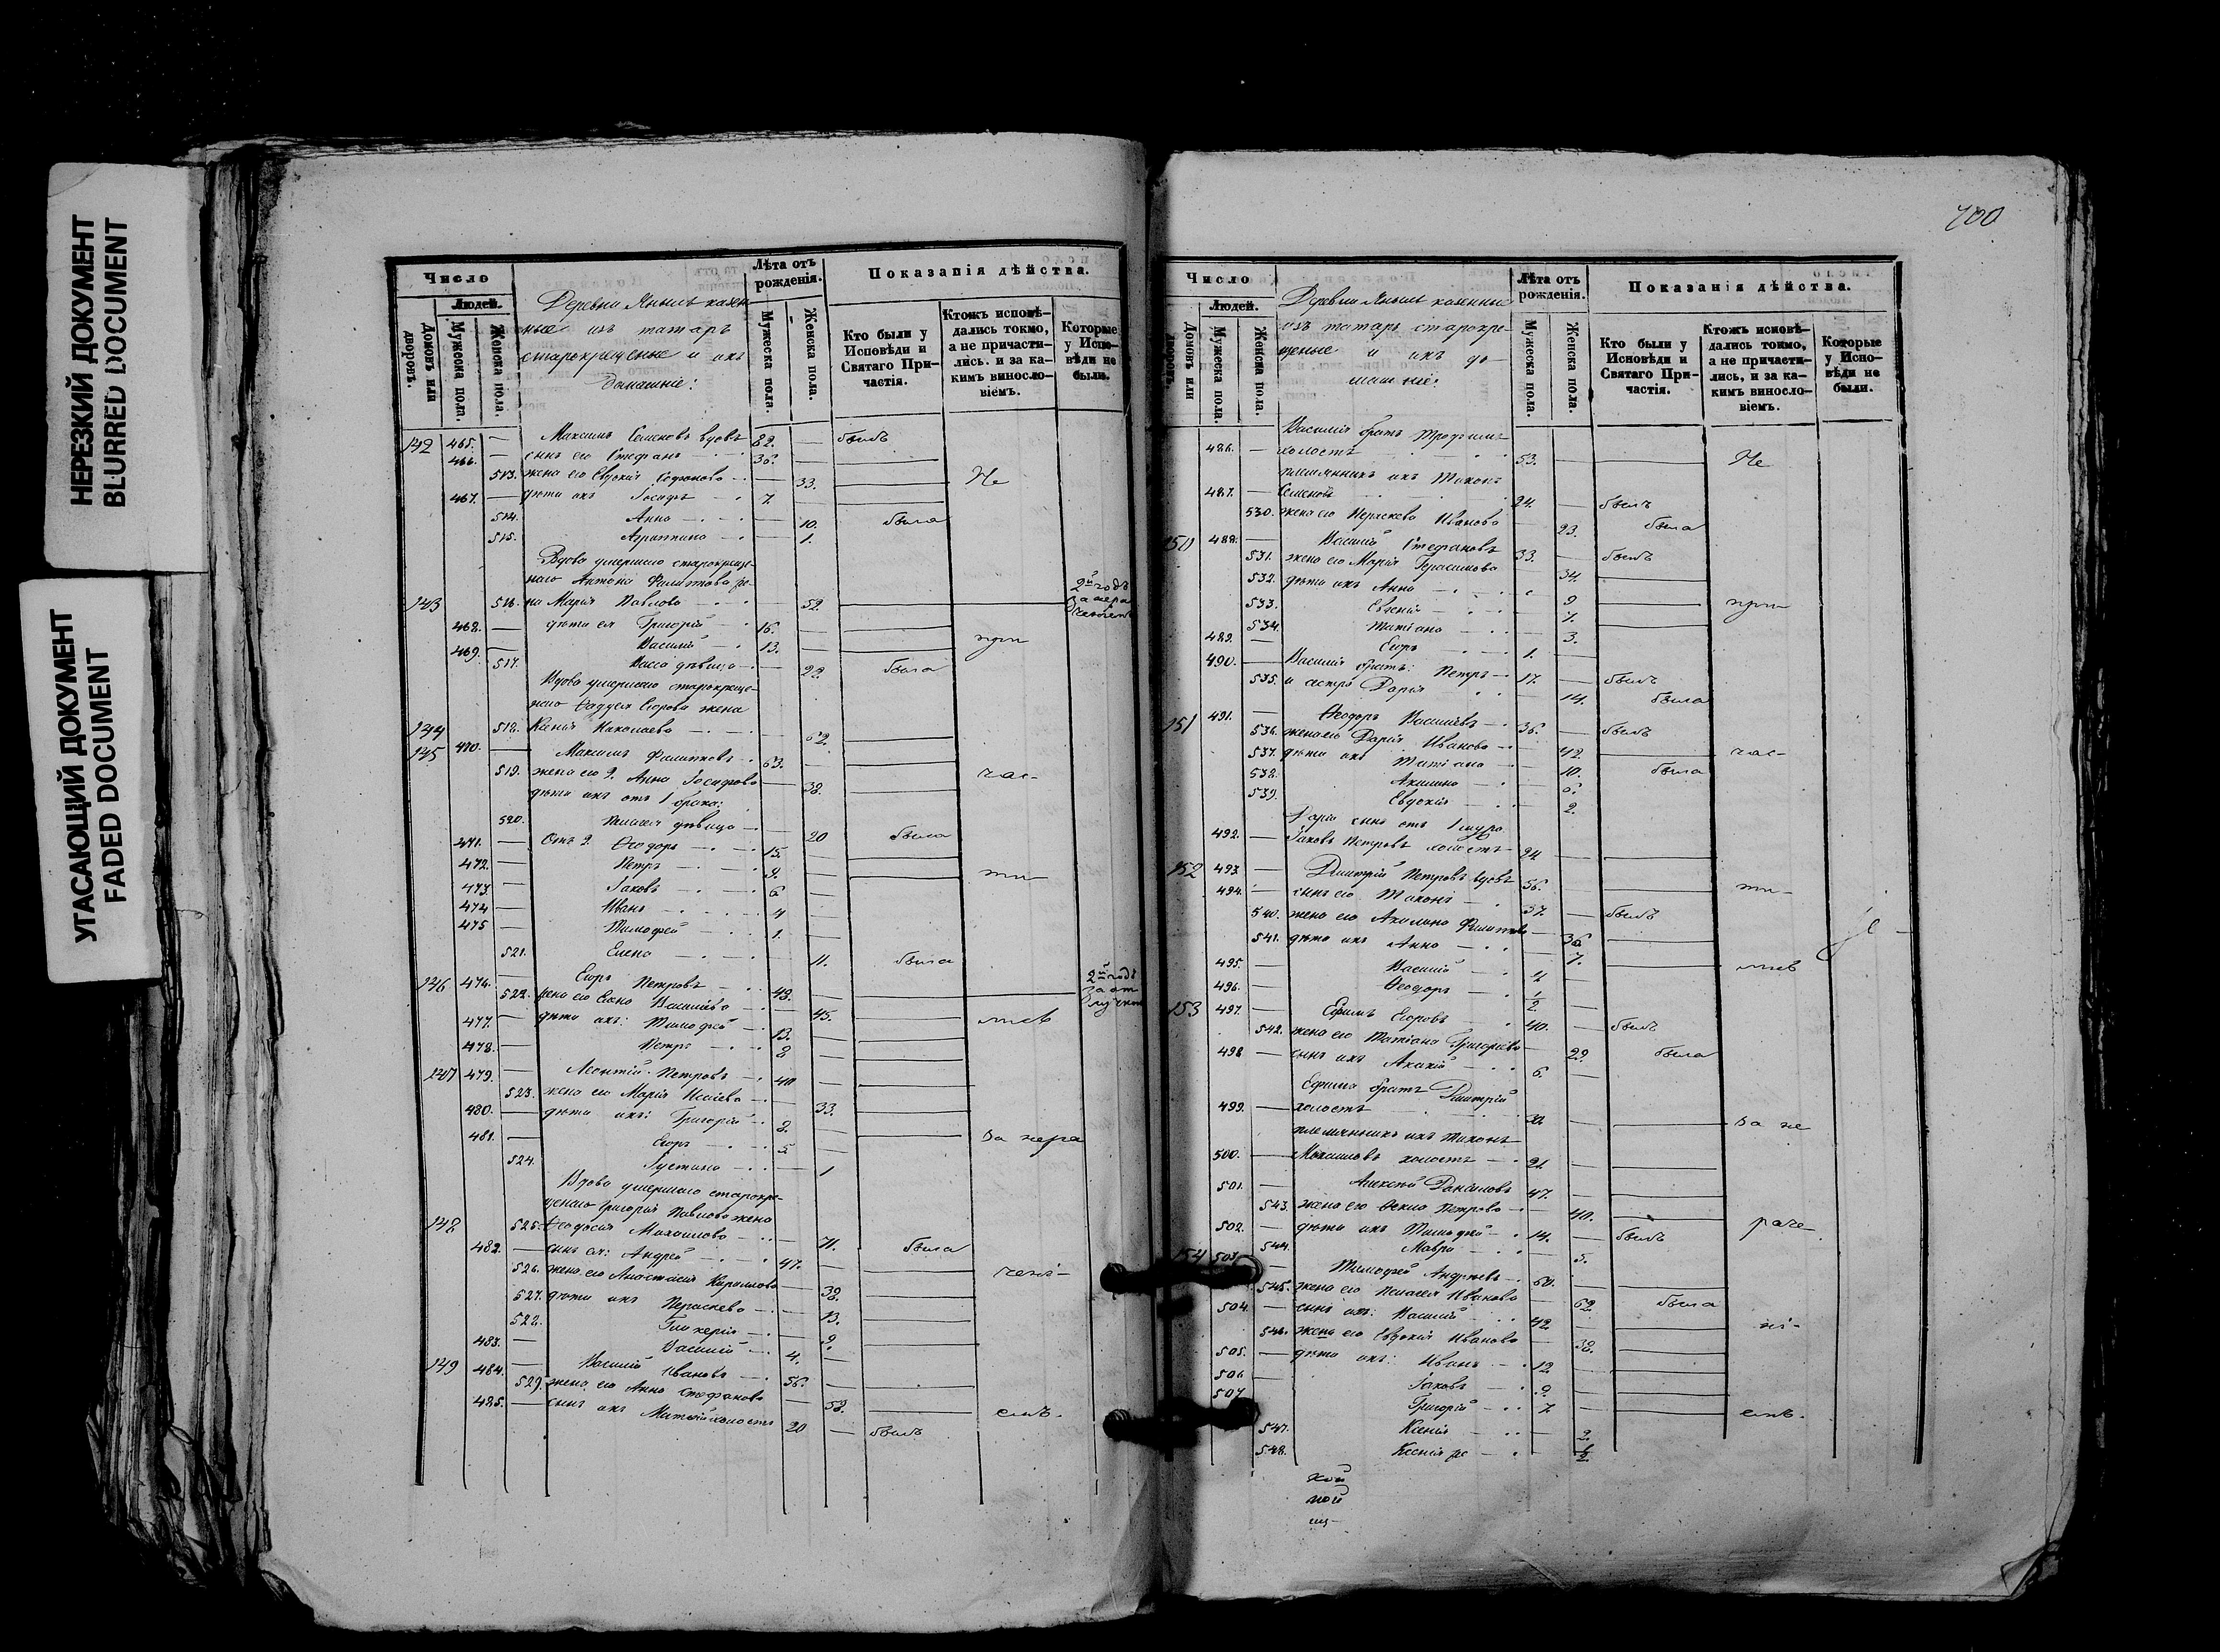 НЕРЕЗКИЙ ДОКУМЕНТ
BLURRED DOCUMENT
УГАСАЮЩИЙ ДОКУМЕНТ
FADED DOCUMENT
Число
Людей.
Домовъ или дворовъ.
Мужеска пола.
Женска пола.
Деревни казен-
ные изъ татаръ
старокрещеные и ихъ
домашніе:
Лѣта отъ рожденія.
Мужеска пола.
Женска пола.
Показанія дѣйства.
Кто были у Исповѣди и Святаго Причастія.
Ктожъ исповѣдались токмо, а не причастились, и за какимъ винословіемъ.
Которые у Исповѣди не были.
142 465. — Максимъ Семеновъ вдовъ 82. — былъ
466. — сынъ его Стефанъ 36. —
513. жена его Евдокія — 33. Не
467. — дѣти ихъ Іосифъ 7
514. Анна — 10. была
515. Агриппина — 1.
Вдова умершаго старокреще-
наго Антона Филиппова же-
143 516. на Марія Павлова — 52.
468. — дѣти ея Григорій 16. —
469. — Василій 13. — при
517. Васса дѣвица — 22. была
Вдова умершаго старокреще-
наго Фаддея Егорова жена
144 518. Ксенія Николаева — 62.
145 470. — Максимъ Филипповъ 63. —
519. жена его 2. Анна Іосифова — 38. час-
дѣти ихъ отъ 1 брака:
520. Пелагея дѣвица — 20 была
471. — Отъ 2 Ѳеодоръ 15. —
472. — Петръ 9. — ти-
473 — Іаковъ 6 —
474 — Иванъ 4 —
475 — Тимофей 1. —
521. Елена — 11. была
146 476. — Егоръ Петровъ 48. —
522. жена его Елена Васильева — 45. лись
477. — дѣти ихъ: Тимофей 13. —
478. — Петръ 8 —
147 479. — Леонтій Петровъ 40 —
523. жена его Марія Исаева — 33.
480. — дѣти ихъ: Григорій 8. —
481. — Егоръ 5 — За нера
524. Іустина — 1
Вдова умершаго старокре-
щенаго Григорія Павлова жена
148 525. Ѳеодосія Михаилова — 71. была
482. — сынъ ея: Андрей 47. —
526. жена его Анастасія Кириллова — 38.
527. дѣти ихъ Параскева — 13.
528. Гликерія — 9.
483. — Василій 4. —
149 484. — Василій Ивановъ 56. —
529. жена его Анна Стефанова — 58. емъ.
485. — сынъ ихъ холостъ 20 — былъ
700
Число
Людей.
Домовъ или дворовъ.
Мужеска пола.
Женска пола.
Деревни казенные
изъ татаръ старокре-
щеные и ихъ до-
машніе:
Лѣта отъ рожденія.
Мужеска пола.
Женска пола.
Показанія дѣйства.
Кто были у Исповѣди и Святаго Причастія.
Ктожъ исповѣдались токмо, а не причастились, и за какимъ винословіемъ.
Которые у Исповѣди не были.
Василія братъ Трофимъ
486. — холостъ 53. Не
племянникъ ихъ Тихонъ
487. — Семеновъ 24. — былъ
530. жена его Параскева Иванова — 23. была
150 488. — Василій Стефановъ 33. — былъ
531. жена его Марія Герасимова — 34.
532. дѣти ихъ Анна — 9 при-
533. Евгенія — 7.
534. Татіана — 3.
489. — Егоръ 1. —
490. — Василія братъ: Петръ 17. — былъ
535. и сестра Дарія 14. была
151 491. — Ѳеодоръ Васильевъ 36. — былъ
536. жена его Дарія Иванова — 42. час-
537. дѣти ихъ Татіана — 10. была
538. Акилина —
539. Евдокія — 2.
Дарьи сынъ отъ 1 мужа
492. — Іаковъ Петровъ холостъ 24 —
152 493 — Димитрій Петровъ вдовъ 56. ти-
494. — сынъ его Тихонъ 37. — былъ
540. жена его Акилина — 36.
541. дѣти ихъ Анна — 7. лись
495. — Василій 4
496. — Ѳеодоръ 1/2
153 497. — Ефимъ Егоровъ 40. — былъ
542. жена его Татіана Григорьева — 29 была
498 — сынъ ихъ Акакій 6. —
Ефима братъ Димитрій
499. — холостъ За не
племянникъ ихъ Тихонъ
500. — холостъ 21. —
501. — Алексѣй Даниловъ 47. —
543. жена его Ѳекла Петрова — 40. раче-
502. — дѣти ихъ Тимофей 14. — былъ
544. Мавра — 5.
154 503 — Тимофей Андреевъ 60. —
545. жена его Пелагея Иванова — 62. была
504. — сынъ ихъ: Василій 42 — ні-
546. жена его Евдокія Иванова — 38.
505. — дѣти ихъ: Иванъ 12
506 — Іаковъ 9. —
507 Григорій 7. — емъ.
547. Ксенія — 2.
548. Ксенія же —
кой
ной